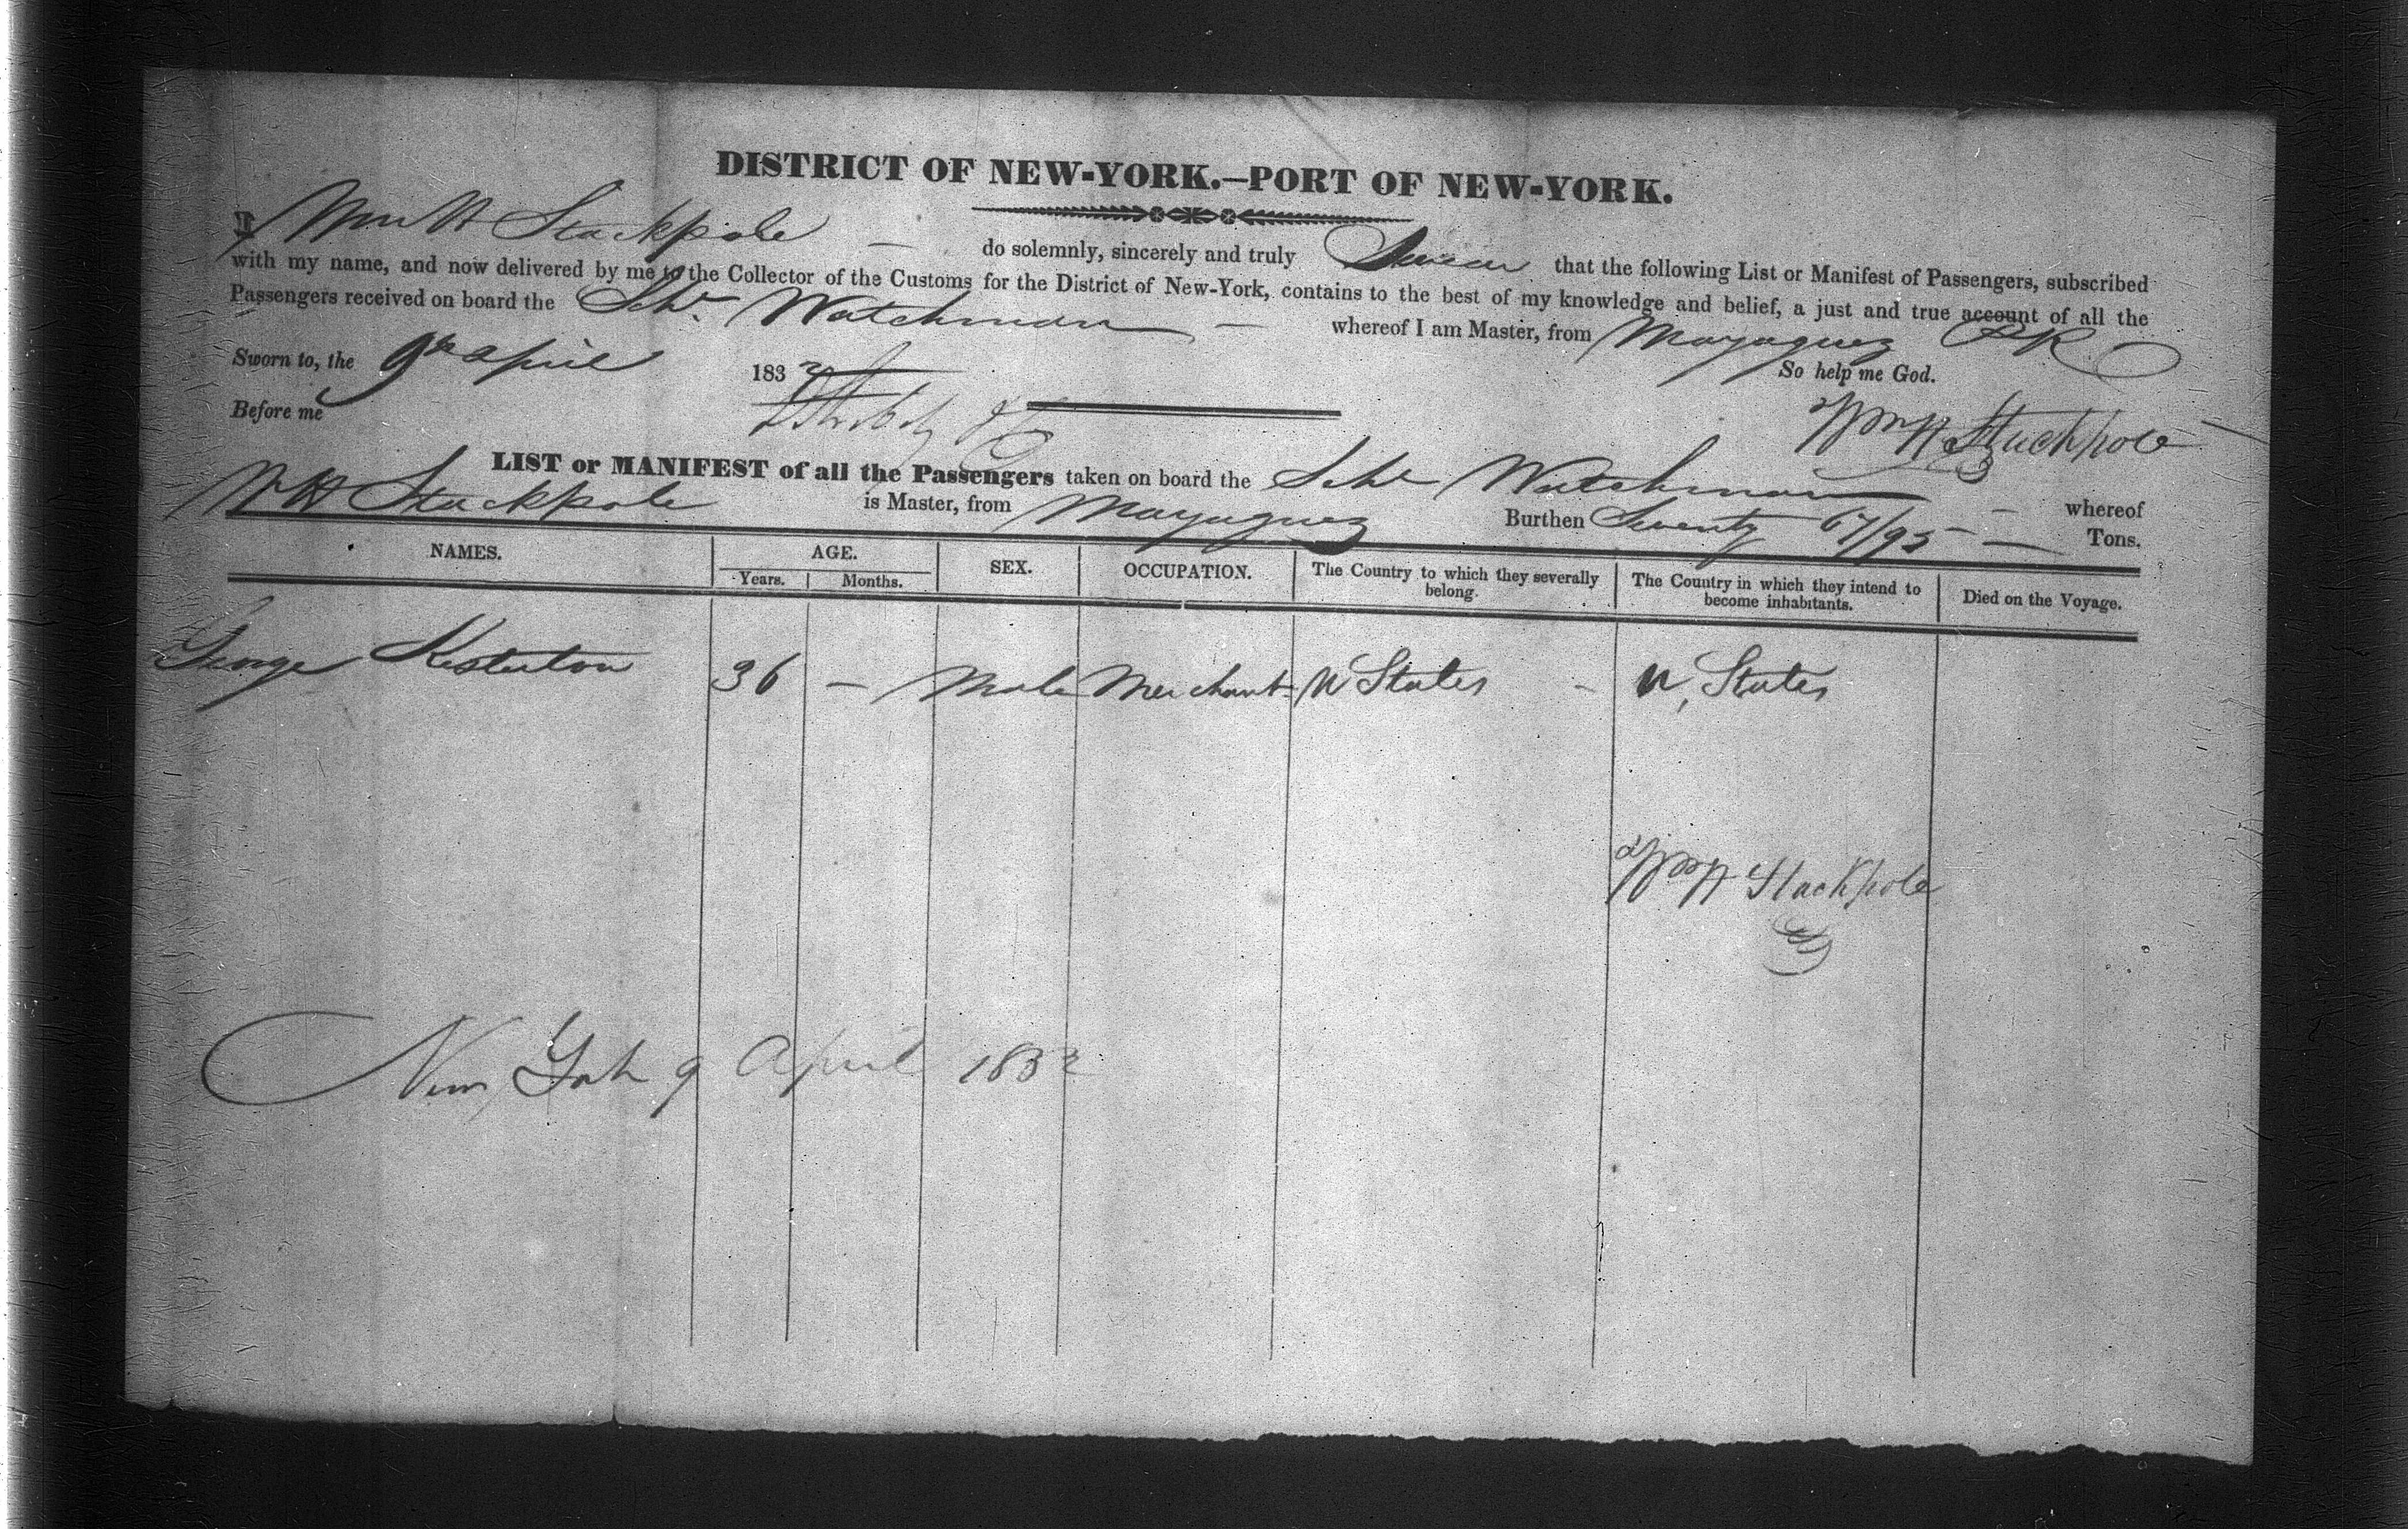 DISTRICT OF NEW-YORK.—PORT OF NEW-YORK.
I Wm H Stackpole — do solemnly, sincerely and truly Swear that the following List or Manifest of Passengers, subscribed
with my name, and now delivered by me to the Collector of the Customs for the District of New-York, contains to the best of my knowledge and belief, a just and true account of all the
Passengers received on board the Schr Watchman — whereof I am Master, from Mayaguez PR
Sworn to, the 9th April 1832 So help me God.
Before me Wm H Stackpole
LIST or MANIFEST of all the Passengers taken on board the Schr Watchman — whereof
W H Stackpole is Master, from Mayaguez Burthen Seventy 67/95 — Tons.
NAMES. AGE. SEX. OCCUPATION. The Country to which they severally belong. The Country in which they intend to become inhabitants. Died on the Voyage.
Years. Months.
George Kesterton 36 — Male Merchant U States - U, States
Wm H Stackpole
New York 9 April 1832